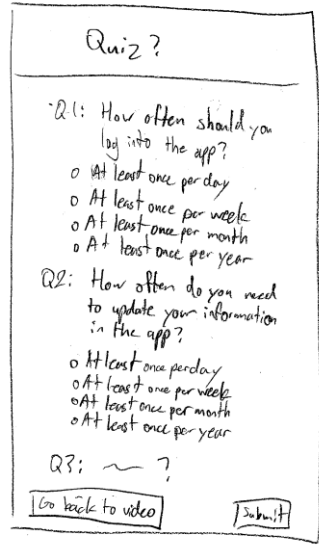 Quiz?
Q1: How often should you
log into the app?
o At least once per day
o At least once per week
o At least once per month
o At least once per year
Q2: How often do you need
to update your information
in the app?
o At least once per day
o At least once per week
o At least once per month
o At least once per year
Q3: ~ ?
Go back to video
Submit